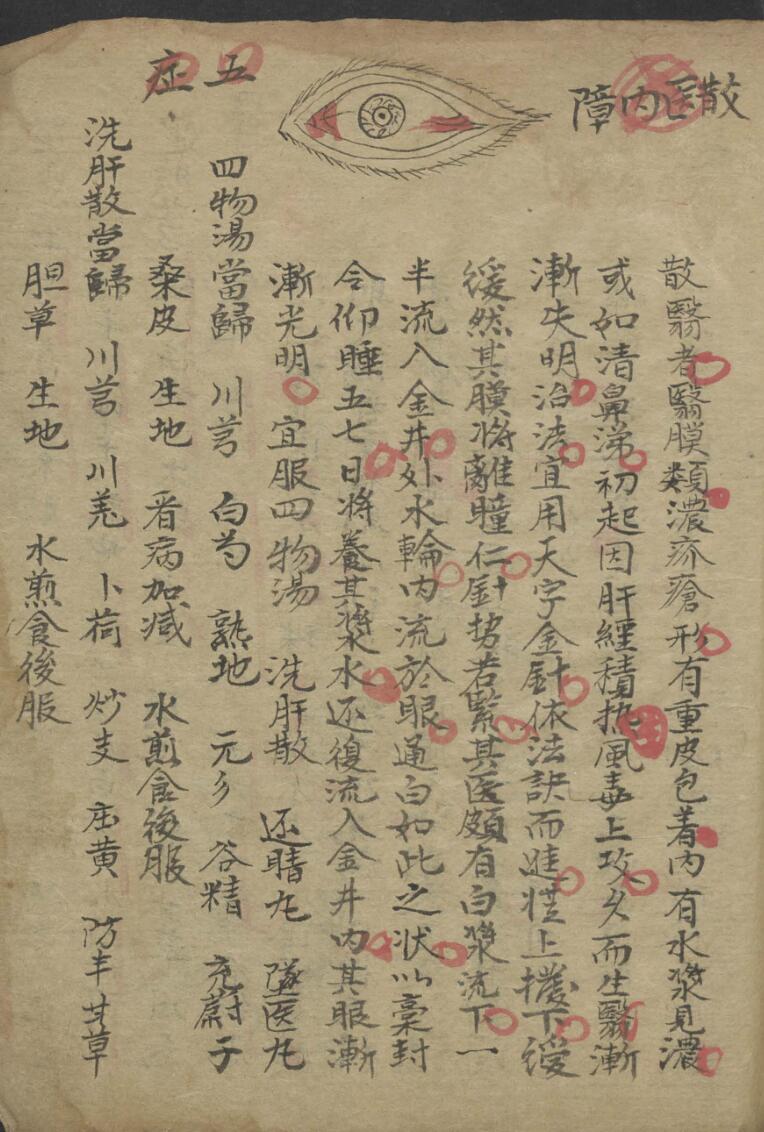 散医内障
五症
散翳者翳膜類濃疥瘡形有重皮包着内有水漿見濃
或如清鼻涕初起因肝經積热風毒上攻久而生翳漸
漸失明治法宜用天字金針依法訣而進從上撥下緩
緩然其膜将離瞳仁針勢若緊其医頗有白漿流下一
半流入金井外水輪内流於眼通白如此之状以藁封
令仰睡五七日将養其漿水还復流入金井内其眼漸
漸光明 宜服四物湯 洗肝散 还睛丸 墜医丸
四物湯當歸 川芎 白芍 熟地 元参 谷精 充蔚子
桑皮 生地 看病加减 水煎食後服
洗肝散當歸 川芎 川羌 卜荷 炒支 庄黄 防丰甘草
胆草 生地 水煎食後服